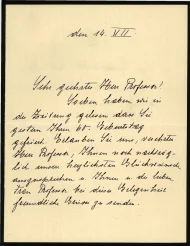 den 14. VII
Sehr geehrter Herr Professor!
Soeben haben wir in
der Zeitung gelesen dass Sie
gestern Ihren 60. Geburtstag
gefeiert. Erlauben Sie uns, verehrter
Herr Professor, Ihnen noch nachträg-
lich unsere herzlichsten Glückwünsche
auszusprechen u Ihnen u der lieben
Frau Professor bei dieser Gelegenheit
freundlich Grüsse zu senden.